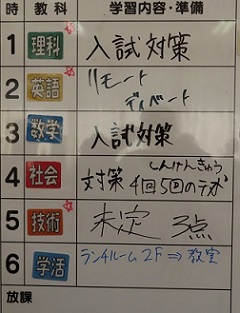 時 教科 学習内容・準備
1 理科 入試対策
2 英語 リモート
ディベート
3 数学 入試対策
しんけんきゅう
4 社会 対策 4回5回のテスト
5 技術 未定 3点
6 学活 ランチルーム2F⇒教室
放課